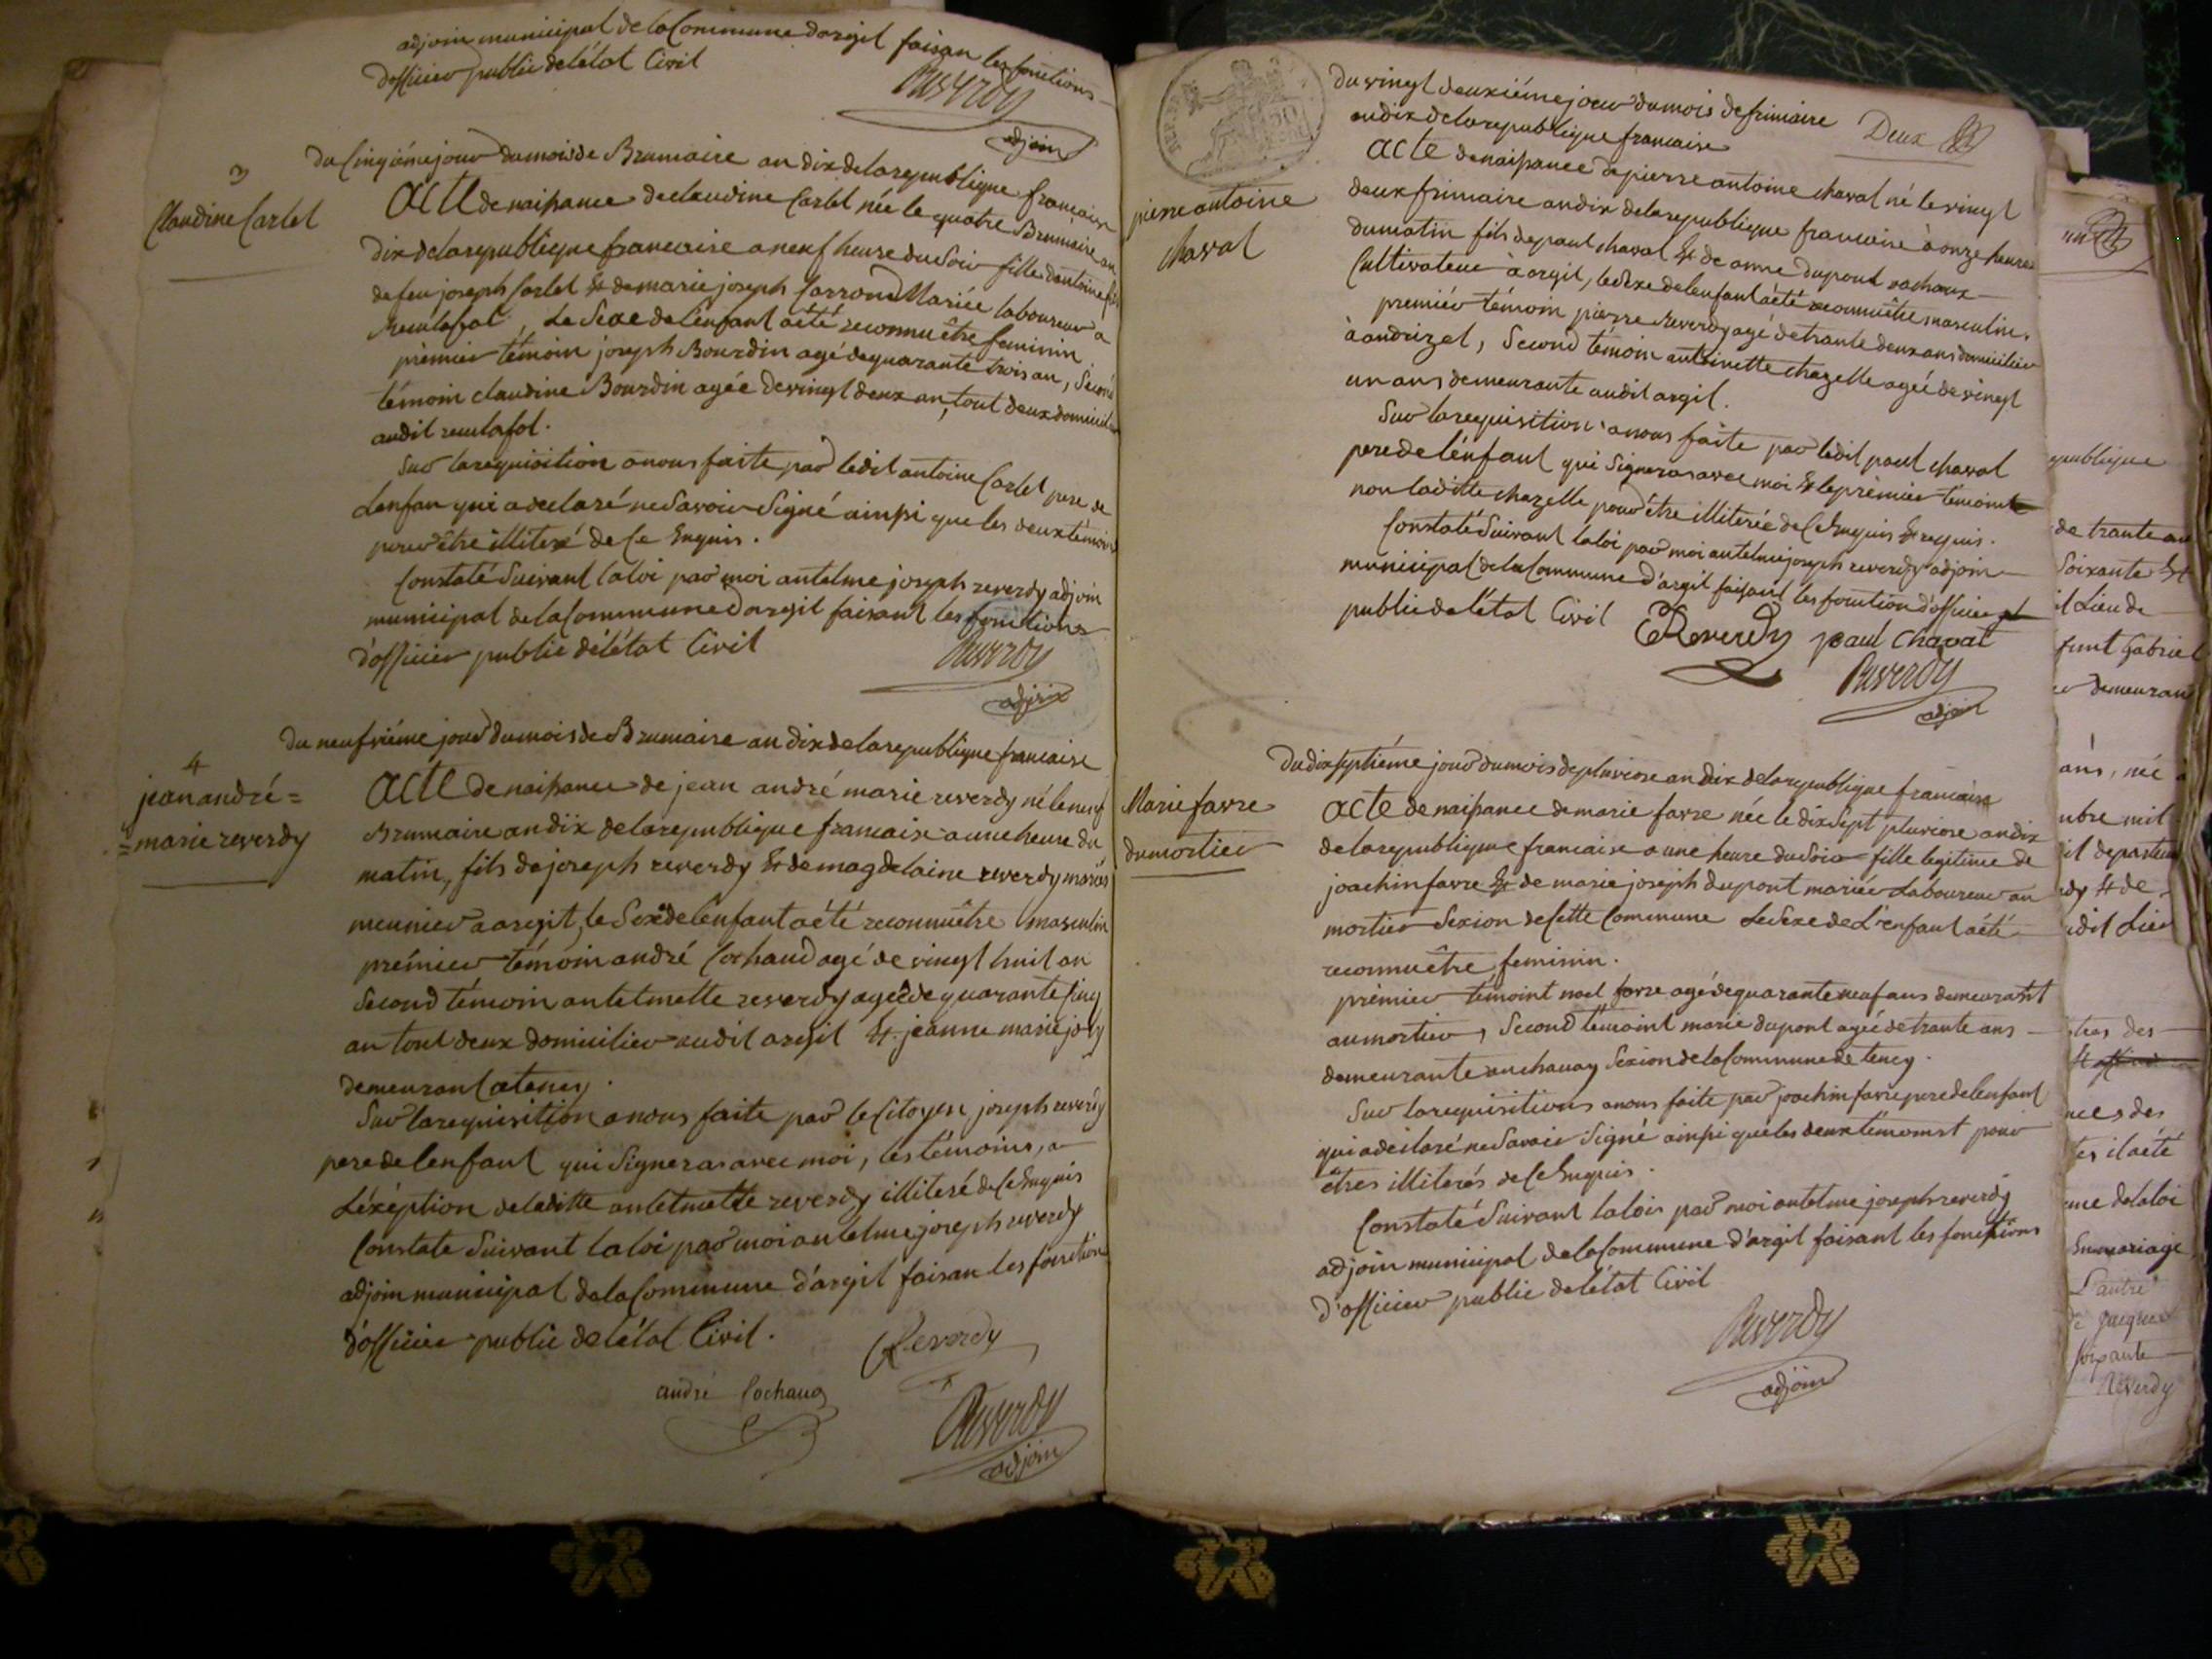 adjoin municipal de la Commune dargil faisan les fonctions
d'officier public de létat Civil
Reverdy
adjoin
3
Claudine Carlet
Du Cinqiéme jour du mois de Brumaire an dix de la republique francaise
Acte de naissance de claudine Carlet née le quatre Brumaire an
dix de la republique francaise a neuf heure du Soir fille dantoine fils
de feu joseph Carlet & de marie joseph Carrond Mariée laboureur a
Le Sexe de lenfant aété reconnu être feminin
prémier témoin joseph Bourdin agé de quarante trois an, Second
témoin claudine Bourdin agée de vingt deux an, tout deux domicilié
audit
Sur la requisition a nous faite par ledit antoine Carlet pere de
Lenfan qui a declaré ne Savoir Signé ainssi que les deux témoin
pour être illiteré de Ce Enquis.
Constaté Suivant la loi par moi antelme joseph reverdy adjoin
municipal de la Commune dargil faisant les fonctions
d'officier public de létat Civil
Reverdy
adjoin
4
jean andré =
= marie reverdy
Du neufviéme jour du mois de Brumaire an dix de la republique francaise
Acte de naissance de jean andré marie reverdy né le neuf
Brumaire an dix de la republique francaise a une heure du
matin, fils de joseph reverdy & de magdelaine reverdy mariés
meunier a argit, le Sexe de lenfant aété reconnu être masculin
prémier témoin andré Cochaud agé de vingt huit an
Second témoin antelmette reverdy agée de quarante Cinq
an tout deux domicilier audit argil & jeanne marie joly
demeurant a tency.
Sur la requisition a nous faite par le Citoyen joseph reverdy
pere de lenfant qui Signeras avec moi, les témoins, a
Léxéption de laditte antelmette reverdy illiteré de Ce Enquis
Constate Suivant la loi par moi antelme joseph reverdy
adjoin municipal de la Commune d'argil faisan les fonction
d'officier public de létat Civil.
Reverdy
andré Cochaud
Reverdy
adjoin
Deux
pierre antoine
Chaval
Du vingt deuxiéme jour du mois de frimaire
an dix de la republique francaise
Acte de naissance de pierre antoine Chaval né le vingt
deux frimaire an dix de la republique francaise à onze heures
du matin fils de paul chaval & de anne dupont
Cultivateur à argil, le Sexe de lenfant aété reconnu être masculin.
premiér témoin pierre Reverdy agé de trante deux ans domicilier
à andrizel, Second témoin antoinette chazelle ageé de vingt
un ans demeurante audit argil.
Sur la requisition a nous faite par ledit paul chaval
pere de lénfant qui Signeras avec moi & le prémier témoint
non laditte chazelle pour être illiterée de Ce Enquis & requis.
Constaté Suivant la loi par moi antelme joseph reverdy adjoin
municipal de la Commune d'argil faisant les fonction d'officier
public de létat Civil
Reverdy paul Chaval
Reverdy
adjoin
Marie favre
du mortier
Du dix septiéme jour du mois de pluviose an dix de la republique francaise
Acte de naissance de marie favre née le dix Sept pluviose an dix
de la republique francaise a une heure du Soir fille legitime de
joachin favre & de marie joseph dupont mariée Laboureur au
mortier Sexion de Cette Commune Le Sexe de L'enfant aété
reconnu être feminin.
prémier témoint noel favre agé de quarante neuf ans demeurant
au mortier, Second témoint marie dupont ageé de trante ans
demeurante au chanay Sexion de la Commune de tency.
Sur la requisitions a nous faite par joachin favre pere de lenfant
qui a déclaré ne Savoir Signé ainssi que les deux témoinst pour
êtres illiterés de Ce Enquis.
Constaté Suivant la lois par moi antelme joseph reverdy
adjoin municipal de la Commune d'argil faisant les fonctions
d'officier public de létat Civil
Reverdy
adjoin
un
republique
de trante an
Soixante &
it Lieu de
funt Gabriel
demeurant
ans, née
mbre mil
dy & de
udit Lieu
des
nces des
tes il aété
ance de la loi
En mariage
L'autre
Soixante
Reverdy